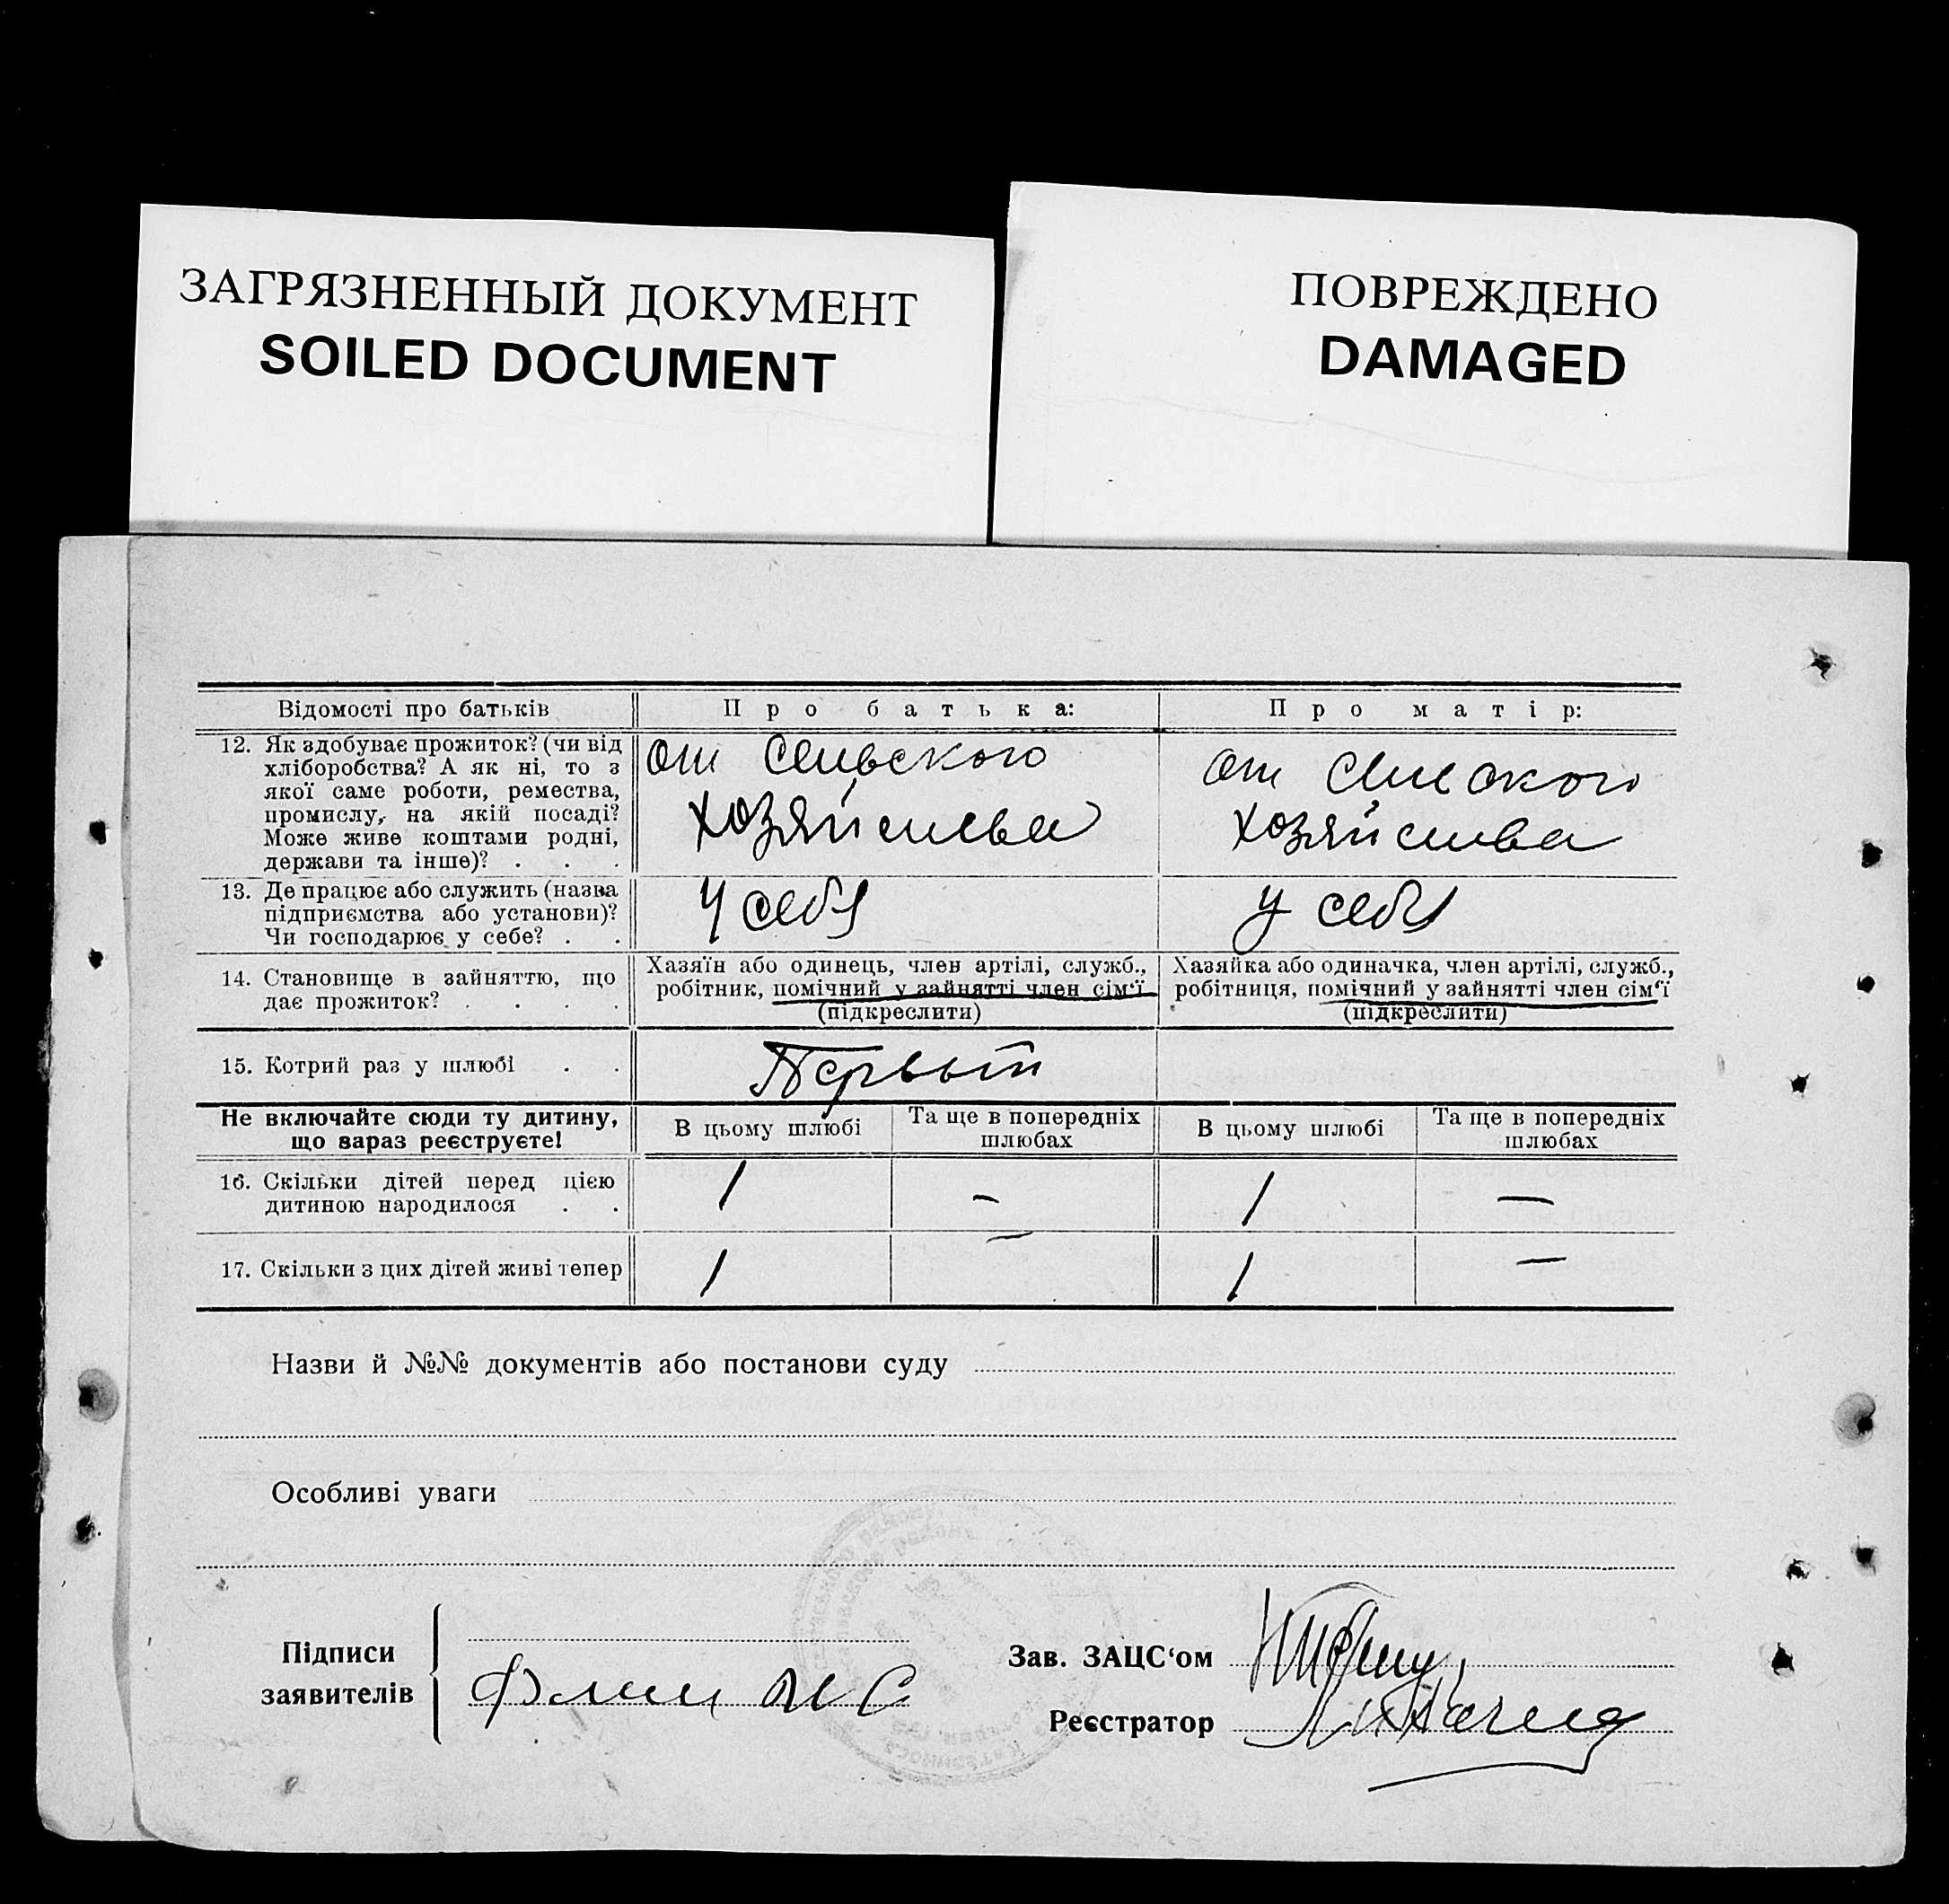 ЗАГРЯЗНЕННЫЙ ДОКУМЕНТ
SOILED DOCUMENT
ПОВРЕЖДЕНО
DAMAGED
Відомості про батьків
Про батька:
Про матір:
12. Як здобуває прожиток? (чи від
хліборобства? А як ні, то з
якої саме роботи, ремества,
промислу, на якій посаді?
Може живе коштами родні,
держави та інше)? . . .
от сельского
хозяйства
от сельского
хозяйства
13. Де працює або служить (назва
підприємства або установи)?
Чи господарює у себе? . .
у себя
у себя
14. Становище в зайняттю, що
дає прожиток? . . . .
Хазяїн або одинець, член артілі, служб.,
робітник, помічний у зайнятті член сім‘ї
(підкреслити)
Хазяйка або одиначка, член артілі, служб.,
робітниця, помічний у зайнятті член сім‘ї
(підкреслити)
15. Котрий раз у шлюбі . .
Первый
Не включайте сюди ту дитину,
що зараз реєструєте!
В цьому шлюбі
Та ще в попередніх
шлюбах
В цьому шлюбі
Та ще в попередніх
шлюбах
16. Скільки дітей перед цією
дитиною народилося . .
1 – 1 —
17. Скільки з цих дітей живі тепер
1 — 1 —
Назви й №№ документів або постанови суду
Особливі уваги
Підписи
заявителів
Зав. ЗАЦС‘ом
Реєстратор